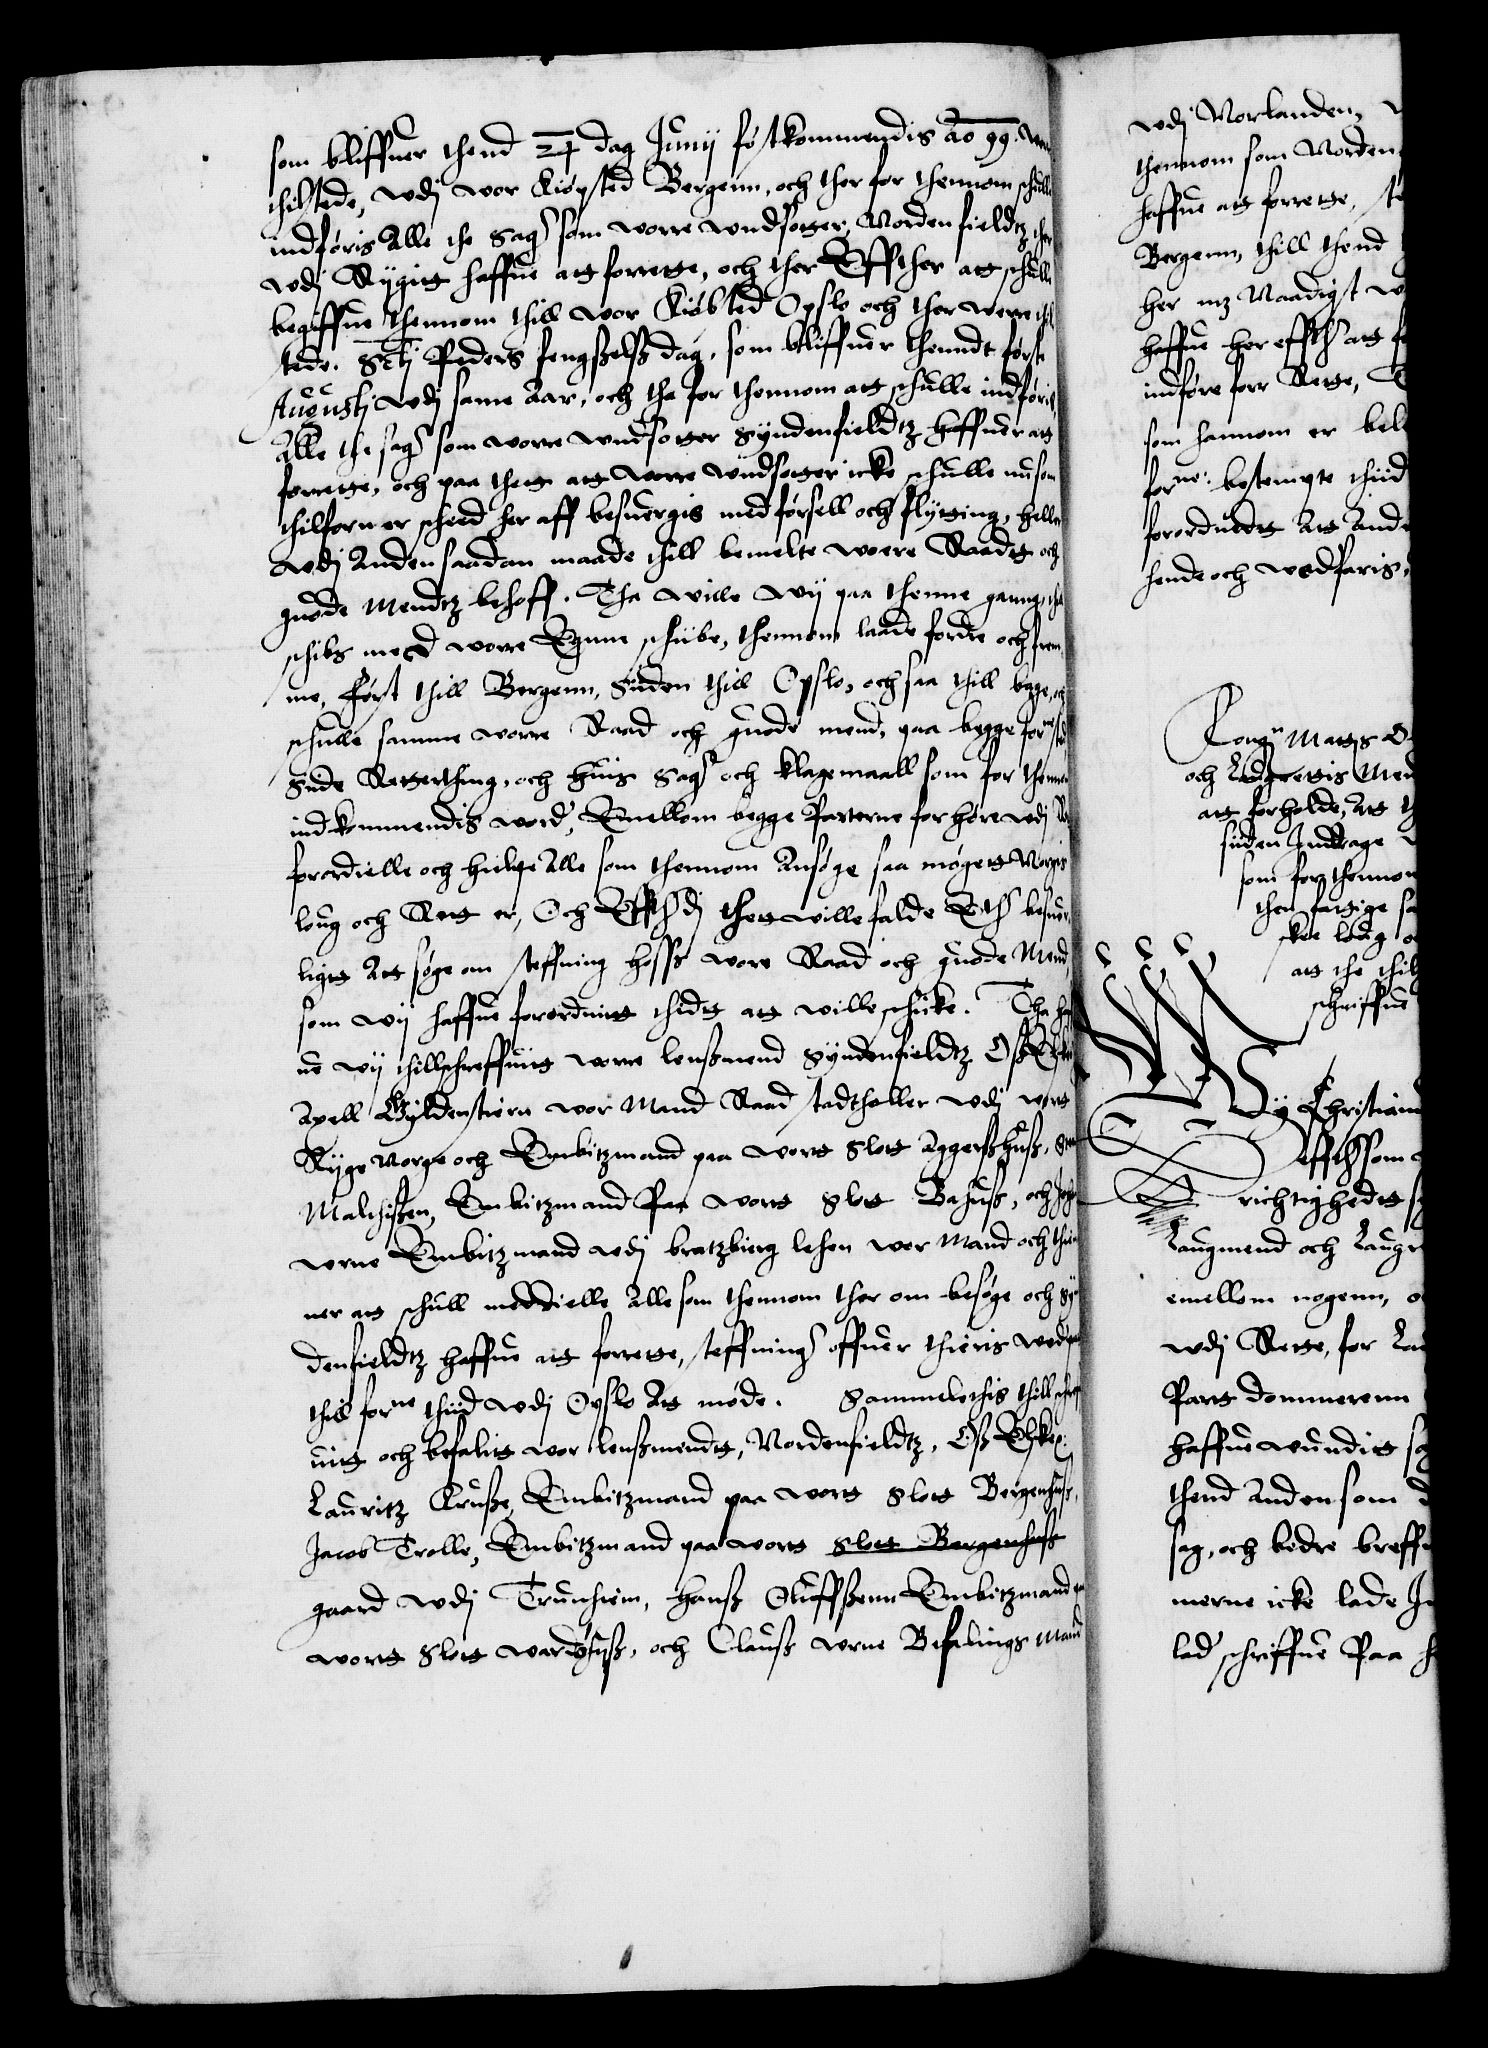 som bliffuer thend 24 dag Junij først kommendis Ao 99. werre
thilstede, wdj wor Kiøpsted Bergenn, och ther for thennom schulle
indføris Alle the Sager som worre wndsotter, Nordenfieldtz ther
wdj Rygitt haffue att forrette, och ther Effther att schulle
begiffue thennom thill wor Kiøbsted Opslo och ther werre thil
stede. Sctj Peders fengszels dag, som bliffuer thenndt først
Augustj wdj same Aar, och tha for thennom att schulle indføris
Alle the sager som worre wndsotter Syndenfieldtz haffuer att
forrette, och paa thett att worre wndsotter icke schulle nu som
thilforn er scheed her aff besuergis med førsell och flytting, heller
wdj Anden saadan maade thill bemelte woere Raadtz och
guode Mendtz behoff. Tha wille wij paa thenne ganng, tha
schibs med worre Egnne schibe, thennom laade fordre och frem
me, først thill Bergenn, Siden thill Opslo, och saa thill bage, och
schulle samme worre Raad och guode mend, paa begge forne sted
Side Retterthing, och huis Sager och klagemaall som for thennom
indkommendis word, Emellom begge Parterne forhøre wdj
fordielle och hielpe Alle som thennom Ansøge saa møgett Norgis
loug och Rett er, Och Effther dj thett wille falde besuer
ligtt Att søge om steffning hoess wore Raad och guode Mend,
som wij haffue forordnitt thidtt att wille schicke. Tha haf
ue wij thillschreffuitt worre lensmend Syndenfieldtz Oss Elske:
Axell Gyldenstiern wor Mand Raad stadtholler wdj wortt
Ryge Norge och Embitzmand paa wortt Slott Aggershuss,
Malthissen, Embitzmand Paa wortt Slott Bahuss, och
wrne Embitzmand wdj bratzbierg lehen wor Mand och thie
ner att schull meddielle Alle som thennom ther om besøge och Sy
denfieldtz haffue att forrette, steffninger offuer thieris wederpart
thill forne thiid wdj Opslo Att møde. Sammeledis thillschreff
uitt och befalitt wor lensmendtt, Nordenfieldtz, Oss Elske:
Lauritz Krusse, Embitzmand paa wortt Slott Bergenhuss,
Jacob Trolle, Embitzmand paa wortt Slott Bergenhuss
gaard wdj Trunhiem, Hanss Oluffssenn Embitzmand paa
wortt Slott wardøhuss, och Clauss wrne Befalings Mand
wdj Norlanden,
thennom som Norden
haffue att forrette,
Bergenn, thill thend
her mz Naadigst
haffue her effther att
indføre forr Rette,
som hannom er bel
forne: bestempte thiid
forordnedtt Att Ande
hende och wedfaris,
Kong: Matts
och Laugrettis Men
att forholde, Att
siden Inddrage
som for thennom
then fattige
ske loug
att the
schriffue
Wy Christian
effther som
richtighedtt
Laugmend och Laugr
emellom nogenn,
wdj Rette, for
Part dommerenn
haffue wundit
thend Anden som
sag, och bedre breffue
merne icke lade
lad schriffue Paa